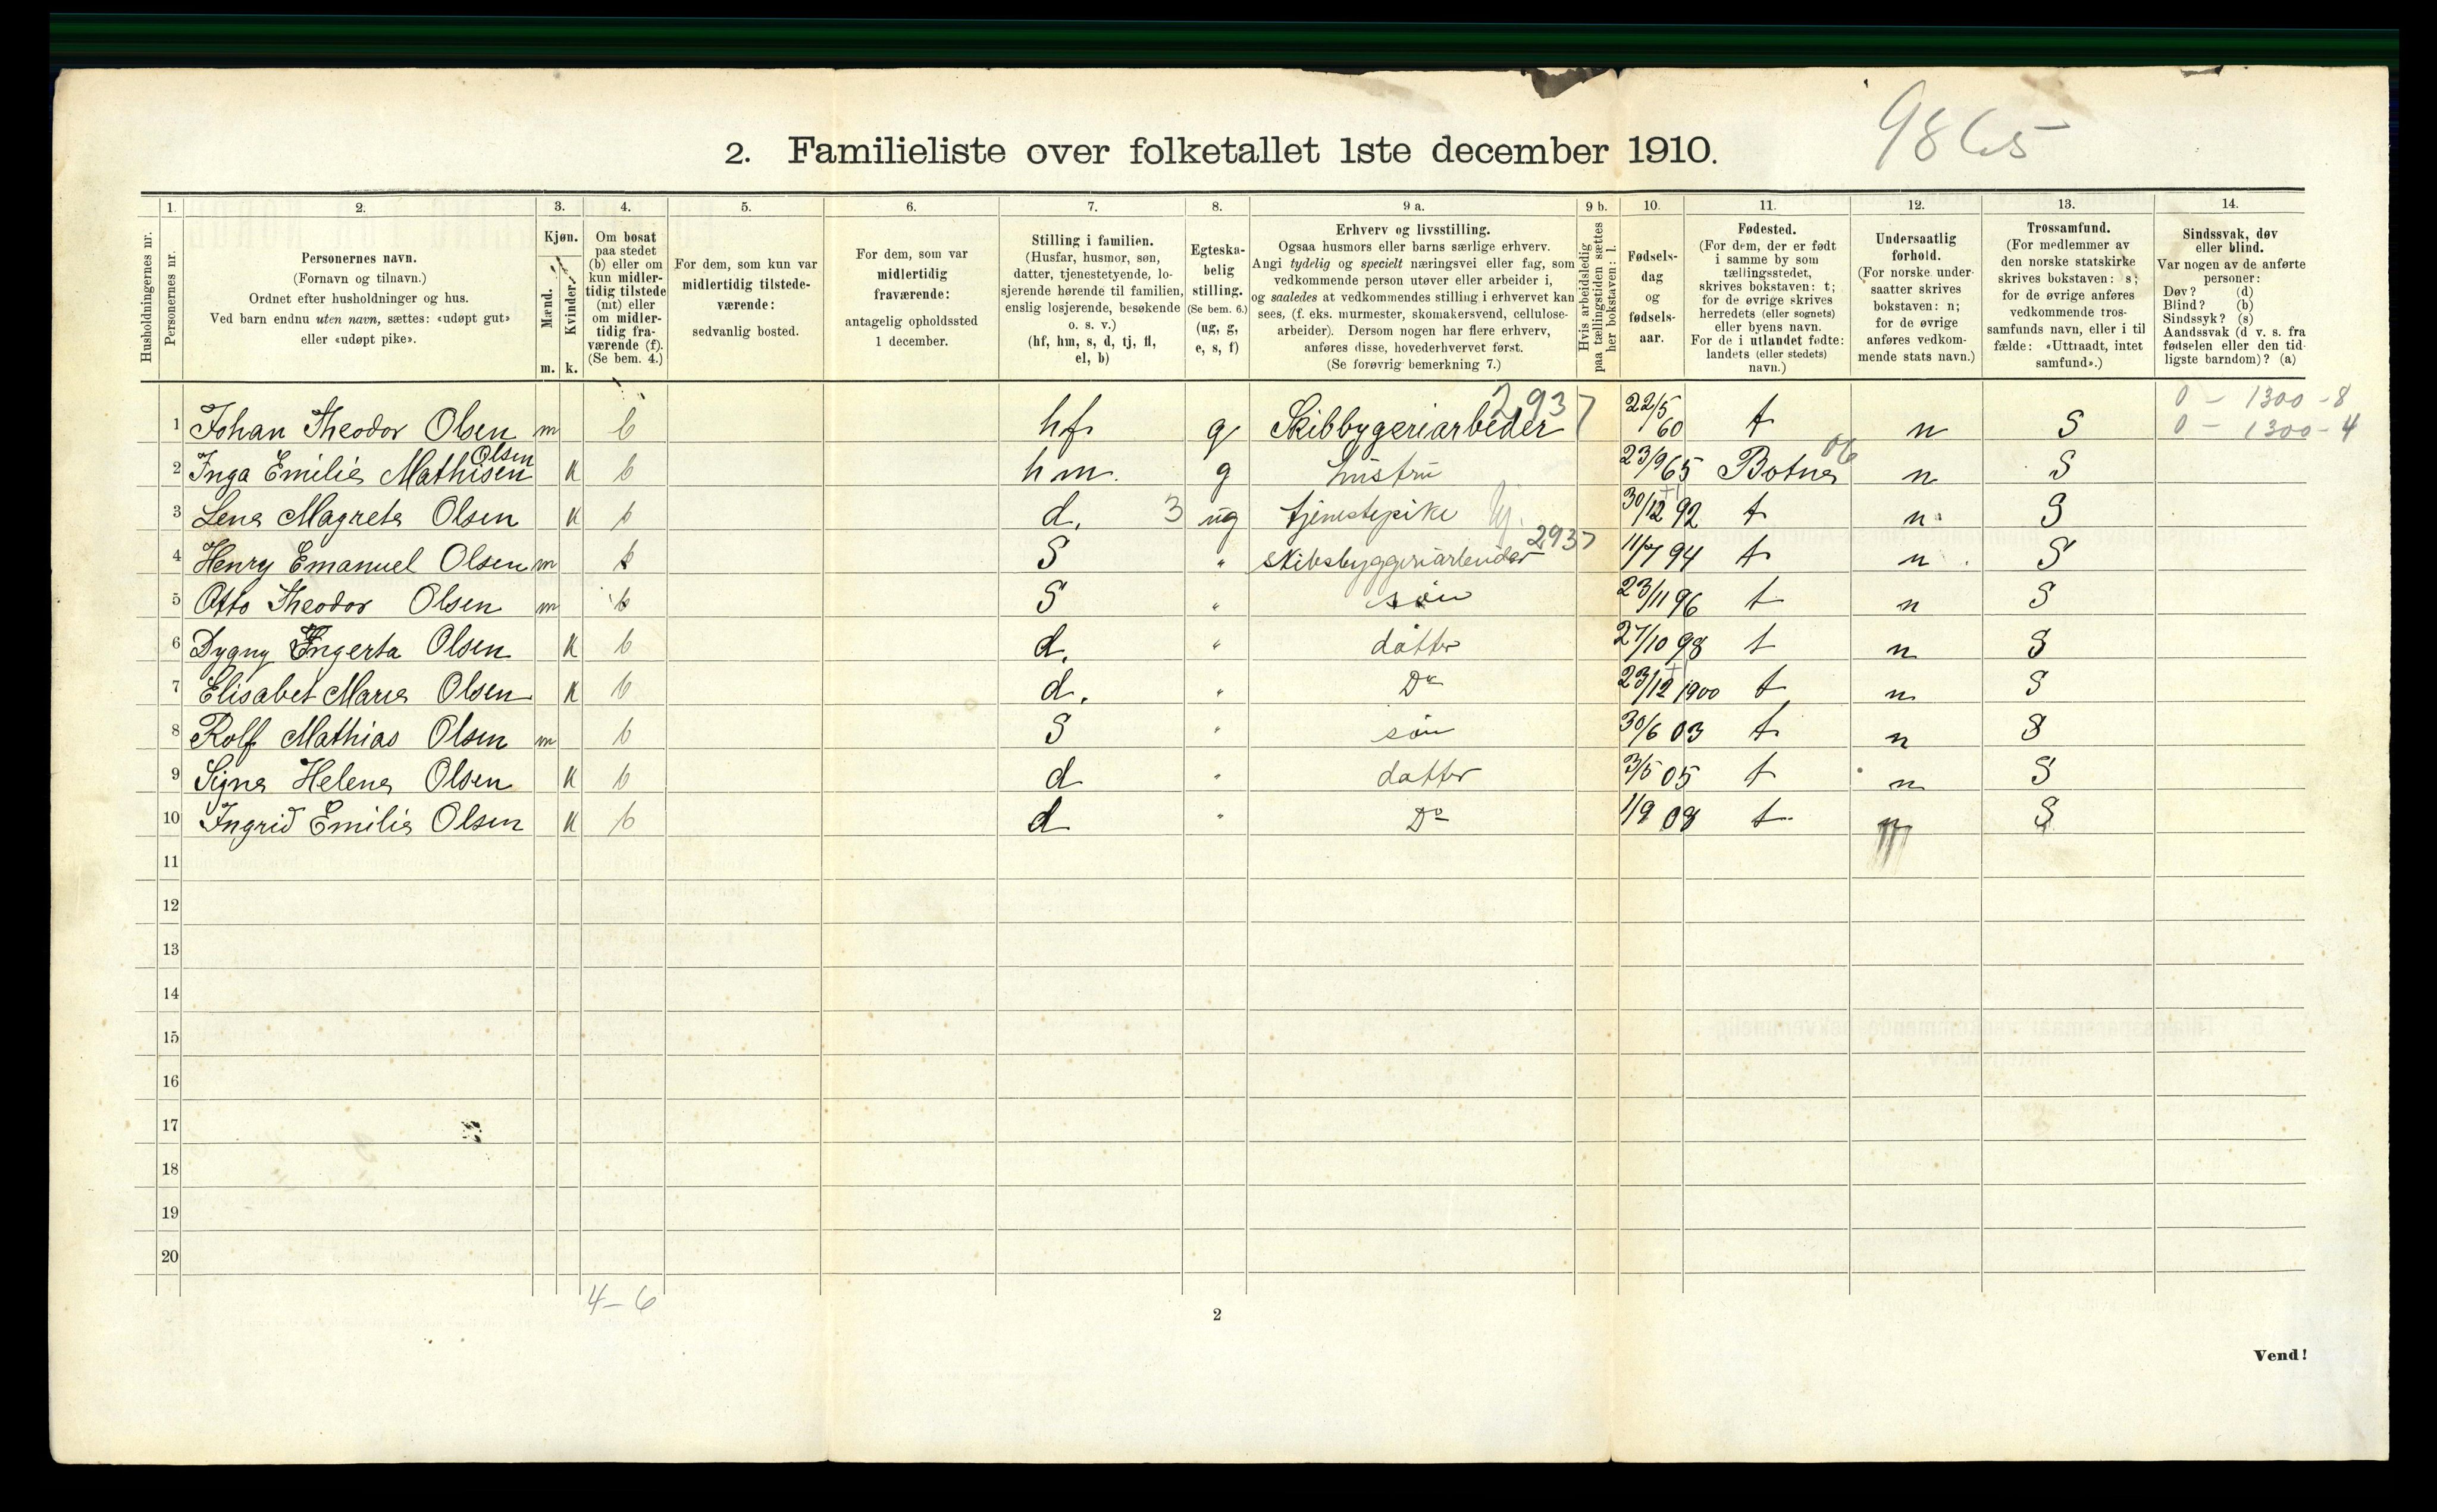 9865
2. Familieliste over folketallet 1ste december 1910.
Husholdningernes nr.
1.
Personernes nr.
2.
Personernes navn.
(Fornavn og tilnavn.)
Ordnet efter husholdninger og hus.
Ved barn endnu uten navn, sættes: «udøpt gut»
eller «udøpt pike».
3.
Kjøn.
Mænd.
Kvinder.
m. k.
4.
Om bosat
paa stedet
(b) eller om
kun midler-
tidig tilstede
(mt) eller
om midler-
tidig fra-
værende (f).
(Se bem. 4.)
5.
For dem, som kun var
midlertidig tilstede-
værende:
sedvanlig bosted.
6.
For dem, som var
midlertidig
fraværende:
antagelig opholdssted
1 december.
7.
Stilling i familien.
(Husfar, husmor, søn,
datter, tjenestetyende, lo-
sjerende hørende til familien,
enslig losjerende, besøkende
o. s. v.)
(hf, hm, s, d, tj, fl,
el, b)
8.
Egteska-
belig
stilling.
(Se bem. 6.)
(ug, g,
e, s, f)
9 a.
Erhverv og livsstilling.
Ogsaa husmors eller barns særlige erhverv.
Angi tydelig og specielt næringsvei eller fag, som
vedkommende person utøver eller arbeider i,
og saaledes at vedkommendes stilling i erhvervet kan
sees, (f. eks. murmester, skomakersvend, cellulose-
arbeider). Dersom nogen har flere erhverv,
anføres disse, hovederhvervet først.
(Se forøvrig bemerkning 7.)
9 b.
Hvis arbeidsledig
paa tællingstiden sættes
her bokstaven: l.
10.
Fødsels-
dag
og
fødsels-
aar.
11.
Fødested.
(For dem, der er født
i samme by som
tællingsstedet,
skrives bokstaven: t;
for de øvrige skrives
herredets (eller sognets)
eller byens navn.
For de i utlandet fødte:
landets (eller stedets)
navn.)
12.
Undersaatlig
forhold.
(For norske under-
saatter skrives
bokstaven: n;
for de øvrige
anføres vedkom-
mende stats navn.)
13.
Trossamfund.
(For medlemmer av
den norske statskirke
skrives bokstaven: s;
for de øvrige anføres
vedkommende tros-
samfunds navn, eller i til-
fælde: «Uttraadt, intet
samfund».)
14.
Sindssvak, døv
eller blind.
Var nogen av de anførte
personer:
Døv? (d)
Blind? (b)
Sindssyk? (s)
Aandssvak (d v. s. fra
fødselen eller den tid-
ligste barndom)? (a)
2937 0 - 1300 - 8
1 Johan Theodor Olsen m b hf g Skibbygeriarbeder 22/5 60 t n S 0 - 1300 - 4
Olsen
2 Inga Emilie Mathisen k b hm. g hustru 23/9 65 Botne 06 n S
3 Lena Magreta Olsen k b d. 3 ug tjenestepike 30/12 92 t n S
4 Henry Emanuel Olsen m b S " skibsbyggeriarbeider 2937 11/7 94 t n S
5 Otto Theodor Olsen m b S " søn 23/11 96 t n S
6 Dygny Ingerta Olsen k b d. " datter 27/10 98 t n S
7 Elisabet Marie Olsen k b d. " Do 23/12 1900 t n S
8 Rolf Mathias Olsen m b S " søn 30/6 03 t n S
9 Signe Helene Olsen k b d " datter 3/5 05 t n S
10 Ingrid Emilie Olsen k b d " Do 1/9 08 t n S
11
12
13
14
15
16
17
18
19
20
4-6
2
Vend!